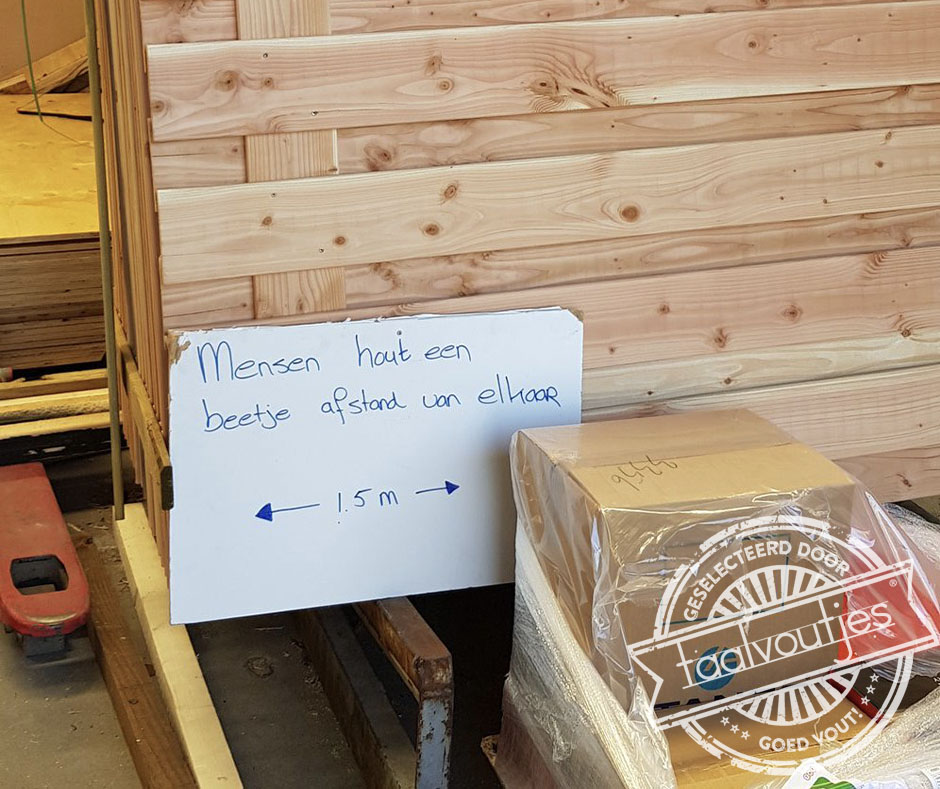 Mensen hout een
beetje afstand van elkaar
1.5 m
9444
GESELECTEERD DOOR
taalvoutjes®
GOED VOUT!